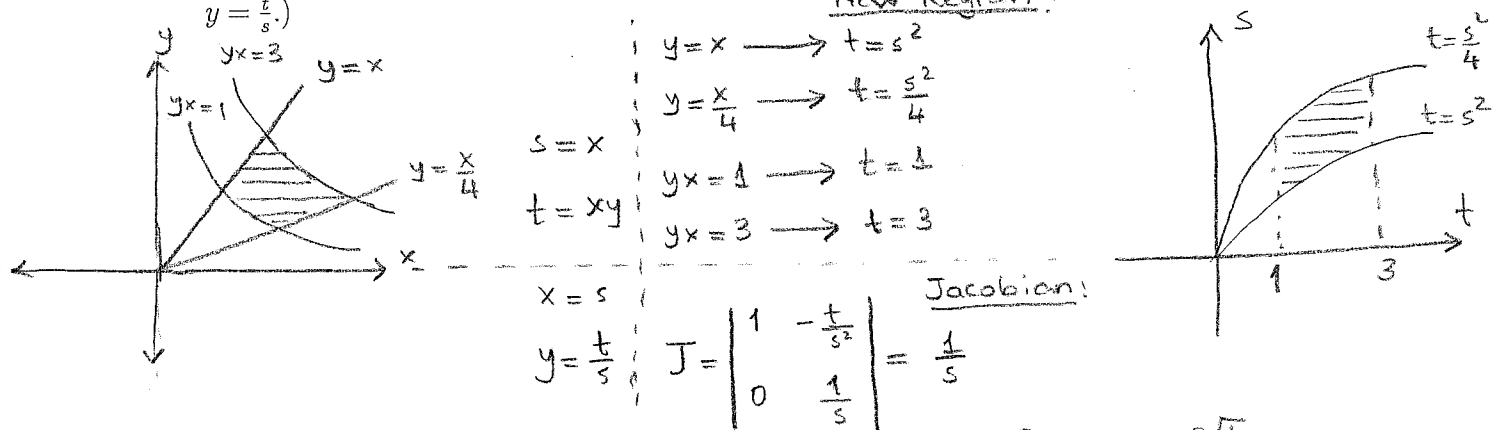 y = t/s.)
y
yx=3
y=x
yx=1
y = x/4
x
s = x
t = xy
x = s
y = t/s
New Region:
y=x → t=s²
y=x/4 → t=s²/4
yx=1 → t=1
yx=3 → t=3
Jacobian:
J = | 1 -t/s² | = 1/s
| 0 1/s |
s
t=s²/4
t=s²
t
1
3